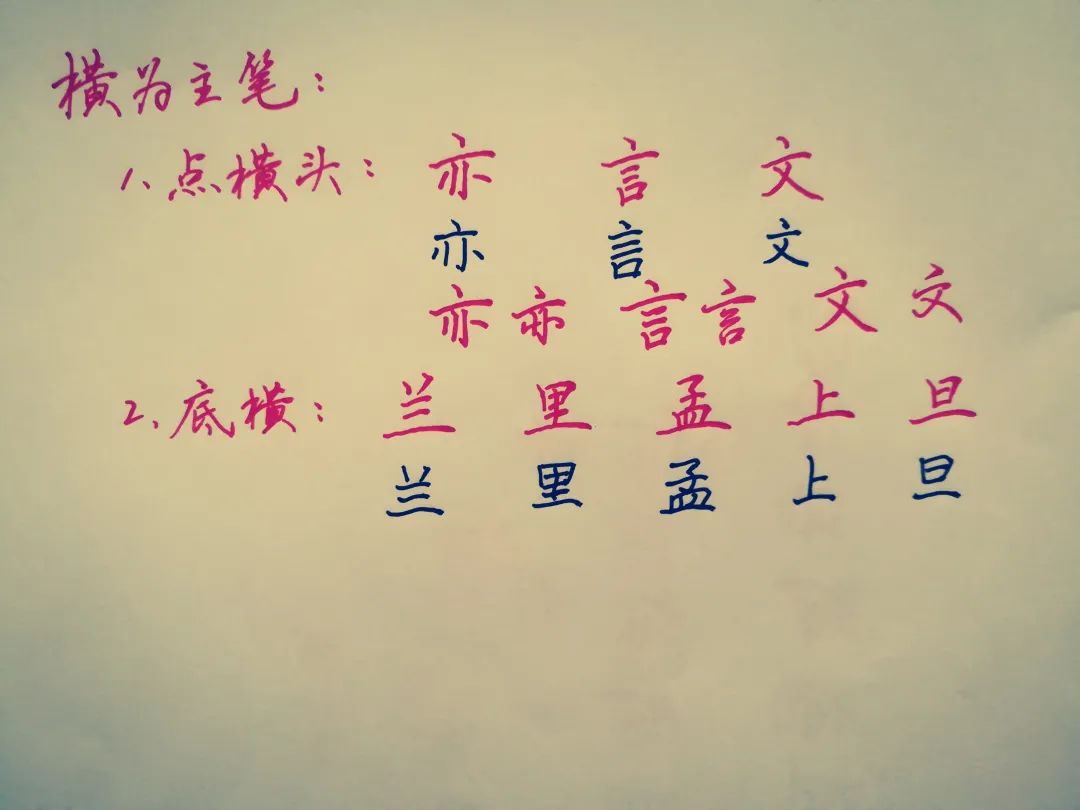 横为主笔:
1、点横头: 亦 言 文
亦 言 文
亦 亦 言 言 文 文
2、底横: 兰 里 孟 上 旦
兰 里 孟 上 旦